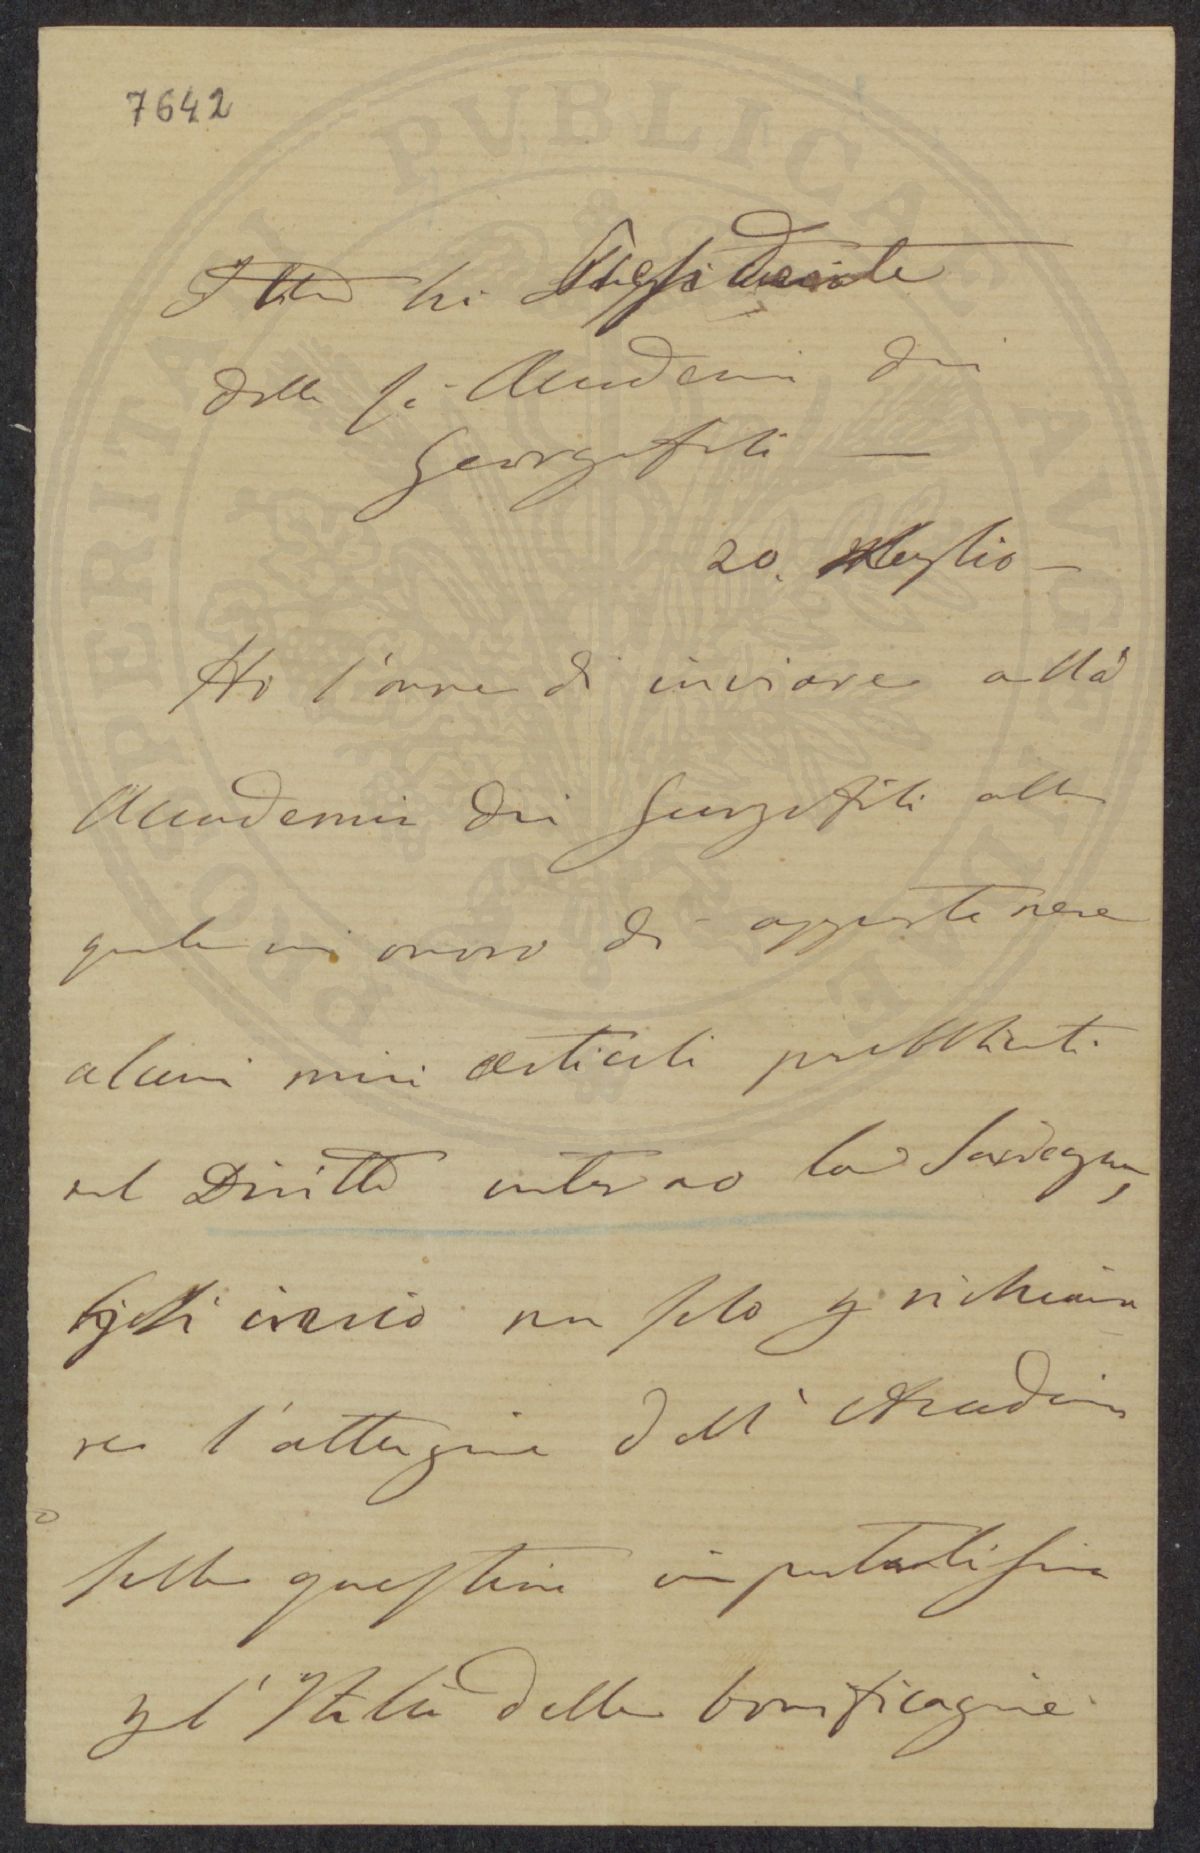 7642
Presidente
della Accademia dei
Georgofili —
20. Luglio —
Ho l'onore di inviare alla
Accademia dei Georgofili alla
quale mi onoro di appartenere
alcuni miei articoli pubblicati
nel Diritto intorno la Sardegna,
invio solo richiama
re l'attenzione dell'Accademia
sulla questione importantissima
l'Italia delle bonificazioni
PROSPERITATI PUBLICAE AUGENDAE